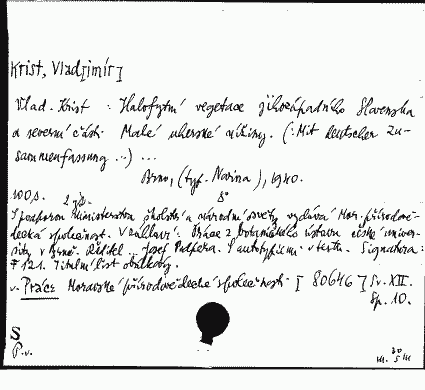 Krist, Vlad[imír]
Vlad. Krist : Halofytní vegetace jihozápadního Slovenska
a severní části Malé uherské nížiny. (: Mit deutscher Zu-
sammenfassung :) ...
Brno, (typ. Novina), 1940.
100 s. 8°
S podporou Ministerstva školství a národní osvěty vydává Mor. přírodově-
decká společnost. V záhlaví: Práce z botanického ústavu české univer-
sity v Brně. Ředitel Josef Podpěra. S autotypiemi v textu. Signatura:
F 121. Titulní list obálkový.
v. Práce Moravské přírodovědecké společnosti [ 80646 ] Sv. XII.
Sp. 10.
S
P.v.